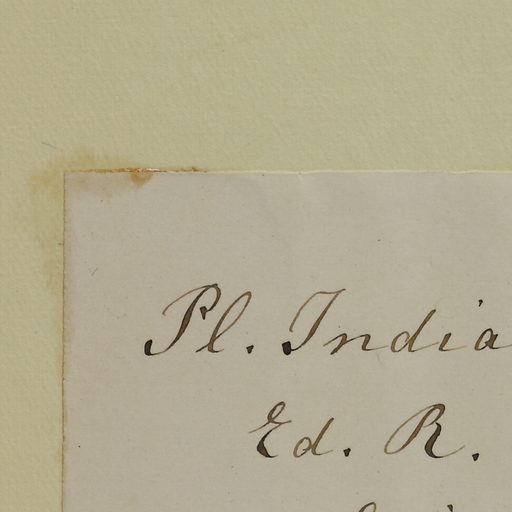 Pl. India
Ed. R.